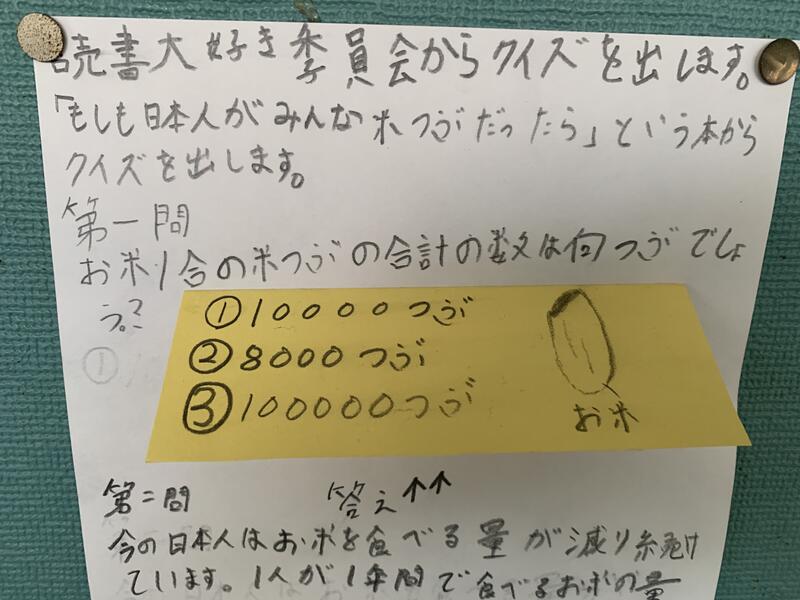 読書大好き委員会からクイズを出します。
「もしも日本人がみんな米つぶだったら」という本から
クイズを出します。
第一問
お米1合の米つぶの合計の数は何つぶでしょ
う。?
①10000つぶ
②8000つぶ
③100000つぶ
お米
①
第二問 答え↑↑
今の日本人はお米を食べる量が減り続け
ています。1人が1年間で食べるお米の量